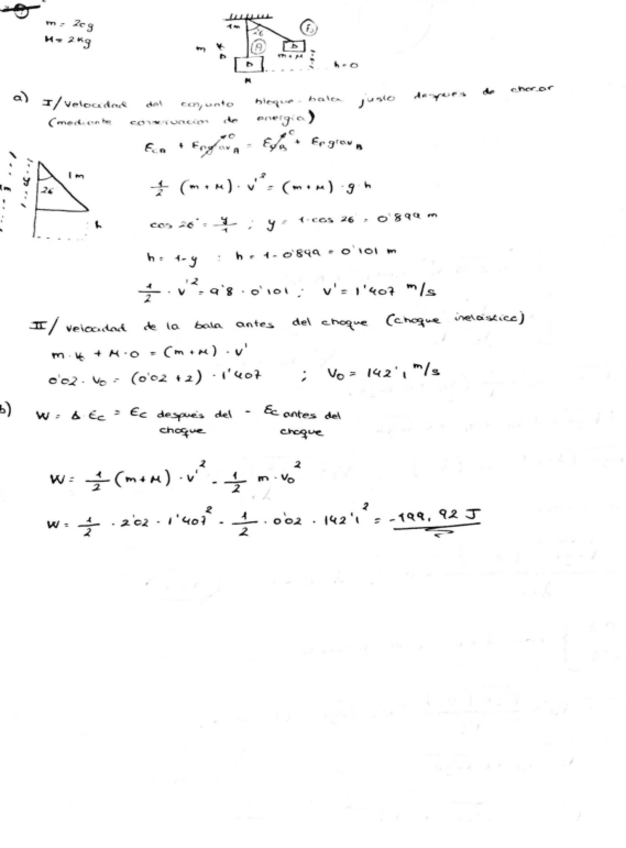 m = 20g
M = 2kg
1m
26
A
B
m+M
h=0
M
a) I/ Velocidad del conjunto bloque-bala justo después de chocar
(mediante conservación de energía)
EcA + EpgravA = EcB + EpgravB
1m
26
h
1/2 (m+M) · v'² = (m+M) · g · h
cos 26° = y/1 ; y = 1·cos 26 = 0'899 m
h = 1-y : h = 1-0'899 = 0'101 m
1/2 · v'² = 9'8 · 0'101 ; v' = 1'407 m/s
II/ velocidad de la bala antes del choque (choque inelástico)
m · v₀ + M · 0 = (m+M) · v'
0'02 · v₀ = (0'02 + 2) · 1'407 ; v₀ = 142'1 m/s
b) W = Δ Ec = Ec después del choque - Ec antes del choque
W = 1/2 (m+M) · v'² - 1/2 m · v₀²
W = 1/2 · 2'02 · 1'407² - 1/2 · 0'02 · 142'1² = -199,92 J